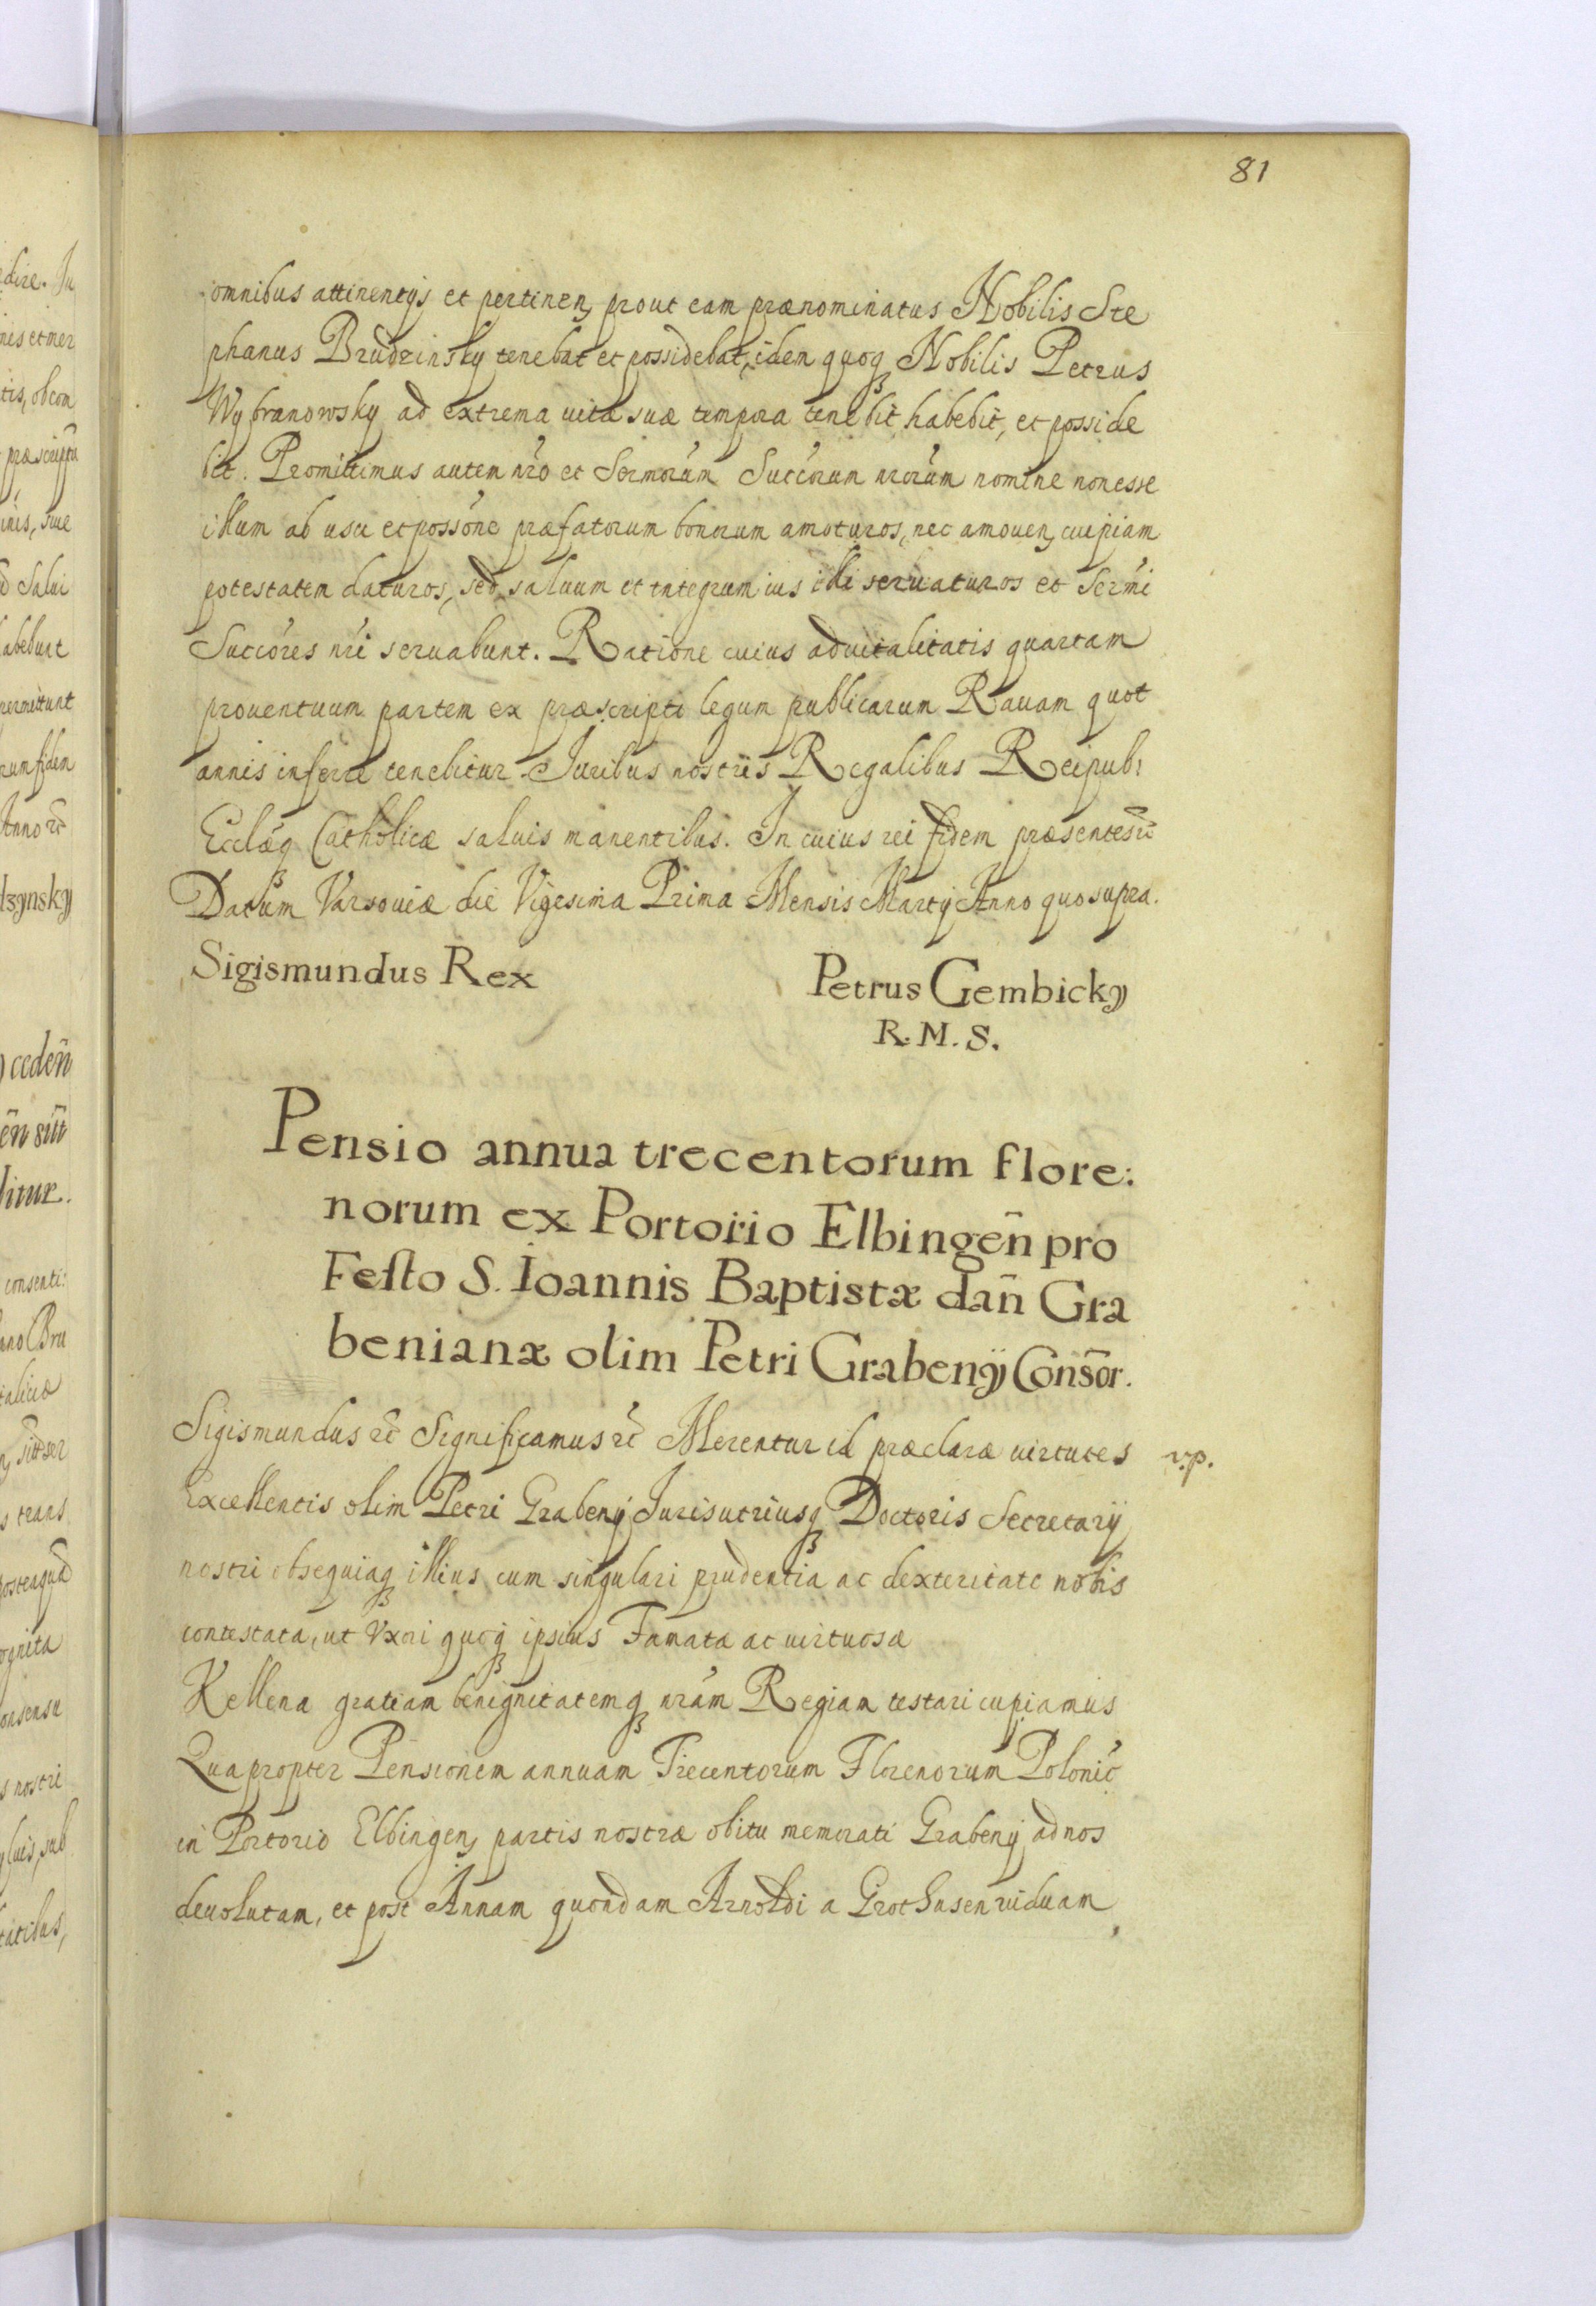 81
omnibus attinentijs et pertinen, prout eam prænominatus Nobilis Ste
phanus Brudzinsky tenebat et possidebat, idem quoq Nobilis Petrus
Wybranowsky ad extrema vitæ suæ tempora tenebit habebit, et posside
bit. Promittimus autem nro et Sermorum Succorum nrorum nomine non esse
illum ab usu et possone præfatorum bonorum amoturos, nec amouen, cuipiam
potestatem daturos, sed saluum et integrum ius illi seruaturos et Sermi
Succores nri seruabunt. Ratione cuius aduitalitatis quartam
prouentuum partem ex præscripto legum publicarum Rauam quot
annis inferre tenebitur. Iuribus nostris Regalibus Reipub:
Ecclæq Catholicæ saluis manentibus. In cuius rei fidem præsentes etc
Datum Varsouiæ die Vigesima Prima Mensis Martij Anno quo supra.
Sigismundus Rex
Petrus Gembicky
R. M. S.
Pensio annua trecentorum flore:
norum ex Portorio Elbingen̄ pro
Festo S. Ioannis Baptistæ dan̄ Gra
benianæ olim Petri Grabenij Consor̄.
Sigismundus etc Significamus etc Merentur id præclaræ uirtutes
v.p.
Excellentis olim Petri Grabenij Iuris utriusq Doctoris Secretarij
nostri obsequiaq illius cum singulari prudentia ac dexteritate nobis
contestata, ut Vxori quoq ipsius Famatæ ac uirtuosæ
Kellena gratiam benignitatemq nram Regiam testari cupiamus
Quapropter Pensionem annuam Trecentorum Florenorum Polonic
in Portorio Elbingen, partis nostræ obitu memorati Grabenij ad nos
deuolutam, et post Annam quondam Arnoldi a Grothusen uiduam